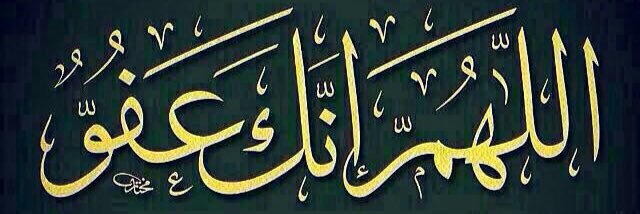 اللّهمّ إنّك عفوٌّ
مختار